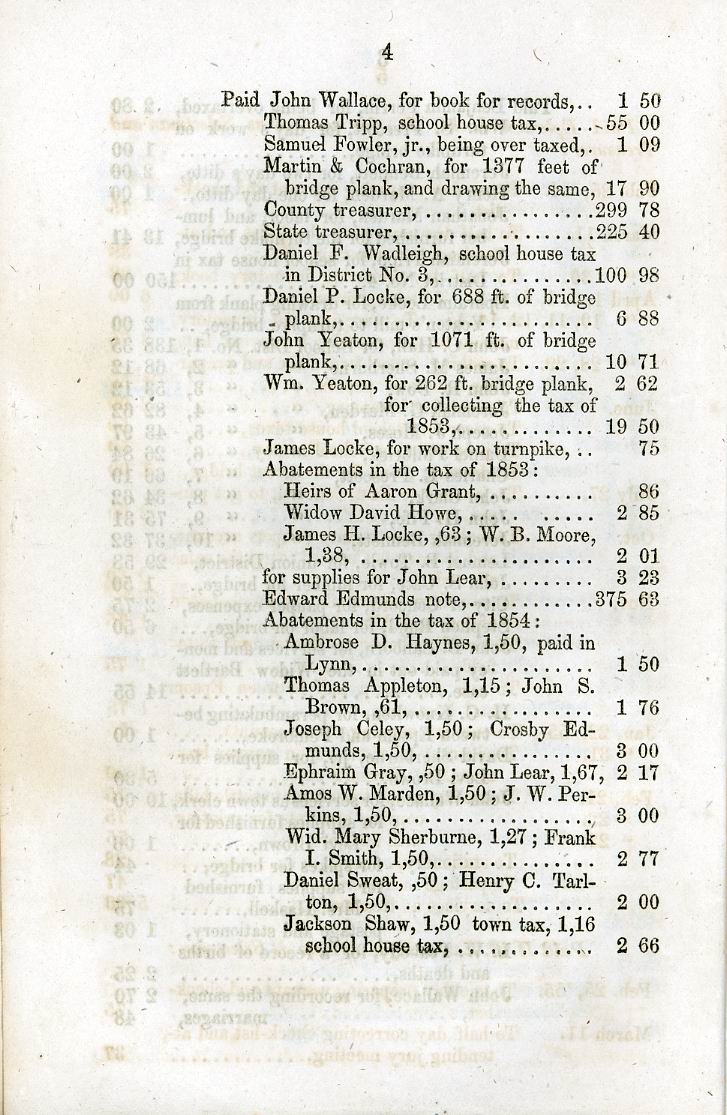 4
Paid John Wallace, for book for records,.. 1 50
Thomas Tripp, school house tax,.....55 00
Samuel Fowler, jr., being over taxed,. 1 09
Martin & Cochran, for 1377 feet of
bridge plank, and drawing the same, 17 90
County treasurer, ................299 78
State treasurer, ..................225 40
Daniel F. Wadleigh, school house tax
in District No. 3,...............100 98
Daniel P. Locke, for 688 ft. of bridge
plank,........................ 6 88
John Yeaton, for 1071 ft. of bridge
plank,........................ 10 71
Wm. Yeaton, for 262 ft. bridge plank, 2 62
for collecting the tax of
1853,............. 19 50
James Locke, for work on turnpike, .. 75
Abatements in the tax of 1853:
Heirs of Aaron Grant, .......... 86
Widow David Howe, ............ 2 85
James H. Locke, ,63; W. B. Moore,
1,38, ....................... 2 01
for supplies for John Lear, ......... 3 23
Edward Edmunds note,............375 63
Abatements in the tax of 1854:
Ambrose D. Haynes, 1,50, paid in
Lynn,....................... 1 50
Thomas Appleton, 1,15; John S.
Brown, ,61, .................. 1 76
Joseph Celey, 1,50; Crosby Ed-
munds, 1,50, ................. 3 00
Ephraim Gray, ,50; John Lear, 1,67, 2 17
Amos W. Marden, 1,50; J. W. Per-
kins, 1,50,................... 3 00
Wid. Mary Sherburne, 1,27; Frank
I. Smith, 1,50,................ 2 77
Daniel Sweat, ,50; Henry C. Tarl-
ton, 1,50,.................... 2 00
Jackson Shaw, 1,50 town tax, 1,16
school house tax, ............. 2 66